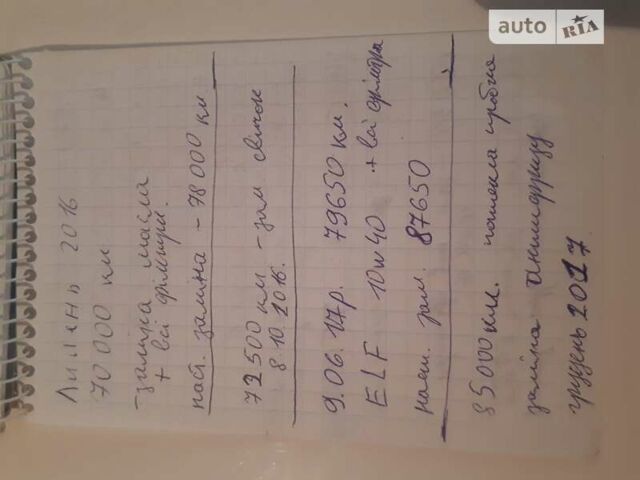 Липень 2016
70 000 км
- заміна масла
+ всі фільтри.
наст. заміна - 78 000 км
72 500 км - зам свічок
8.10.2016.
9.06.17р. 79650 км.
ELF 10w40 + всі фільтра
наст. зам. 87650
85 000 км. пробка
заміна антифризу
грудень 2017
auto RIA